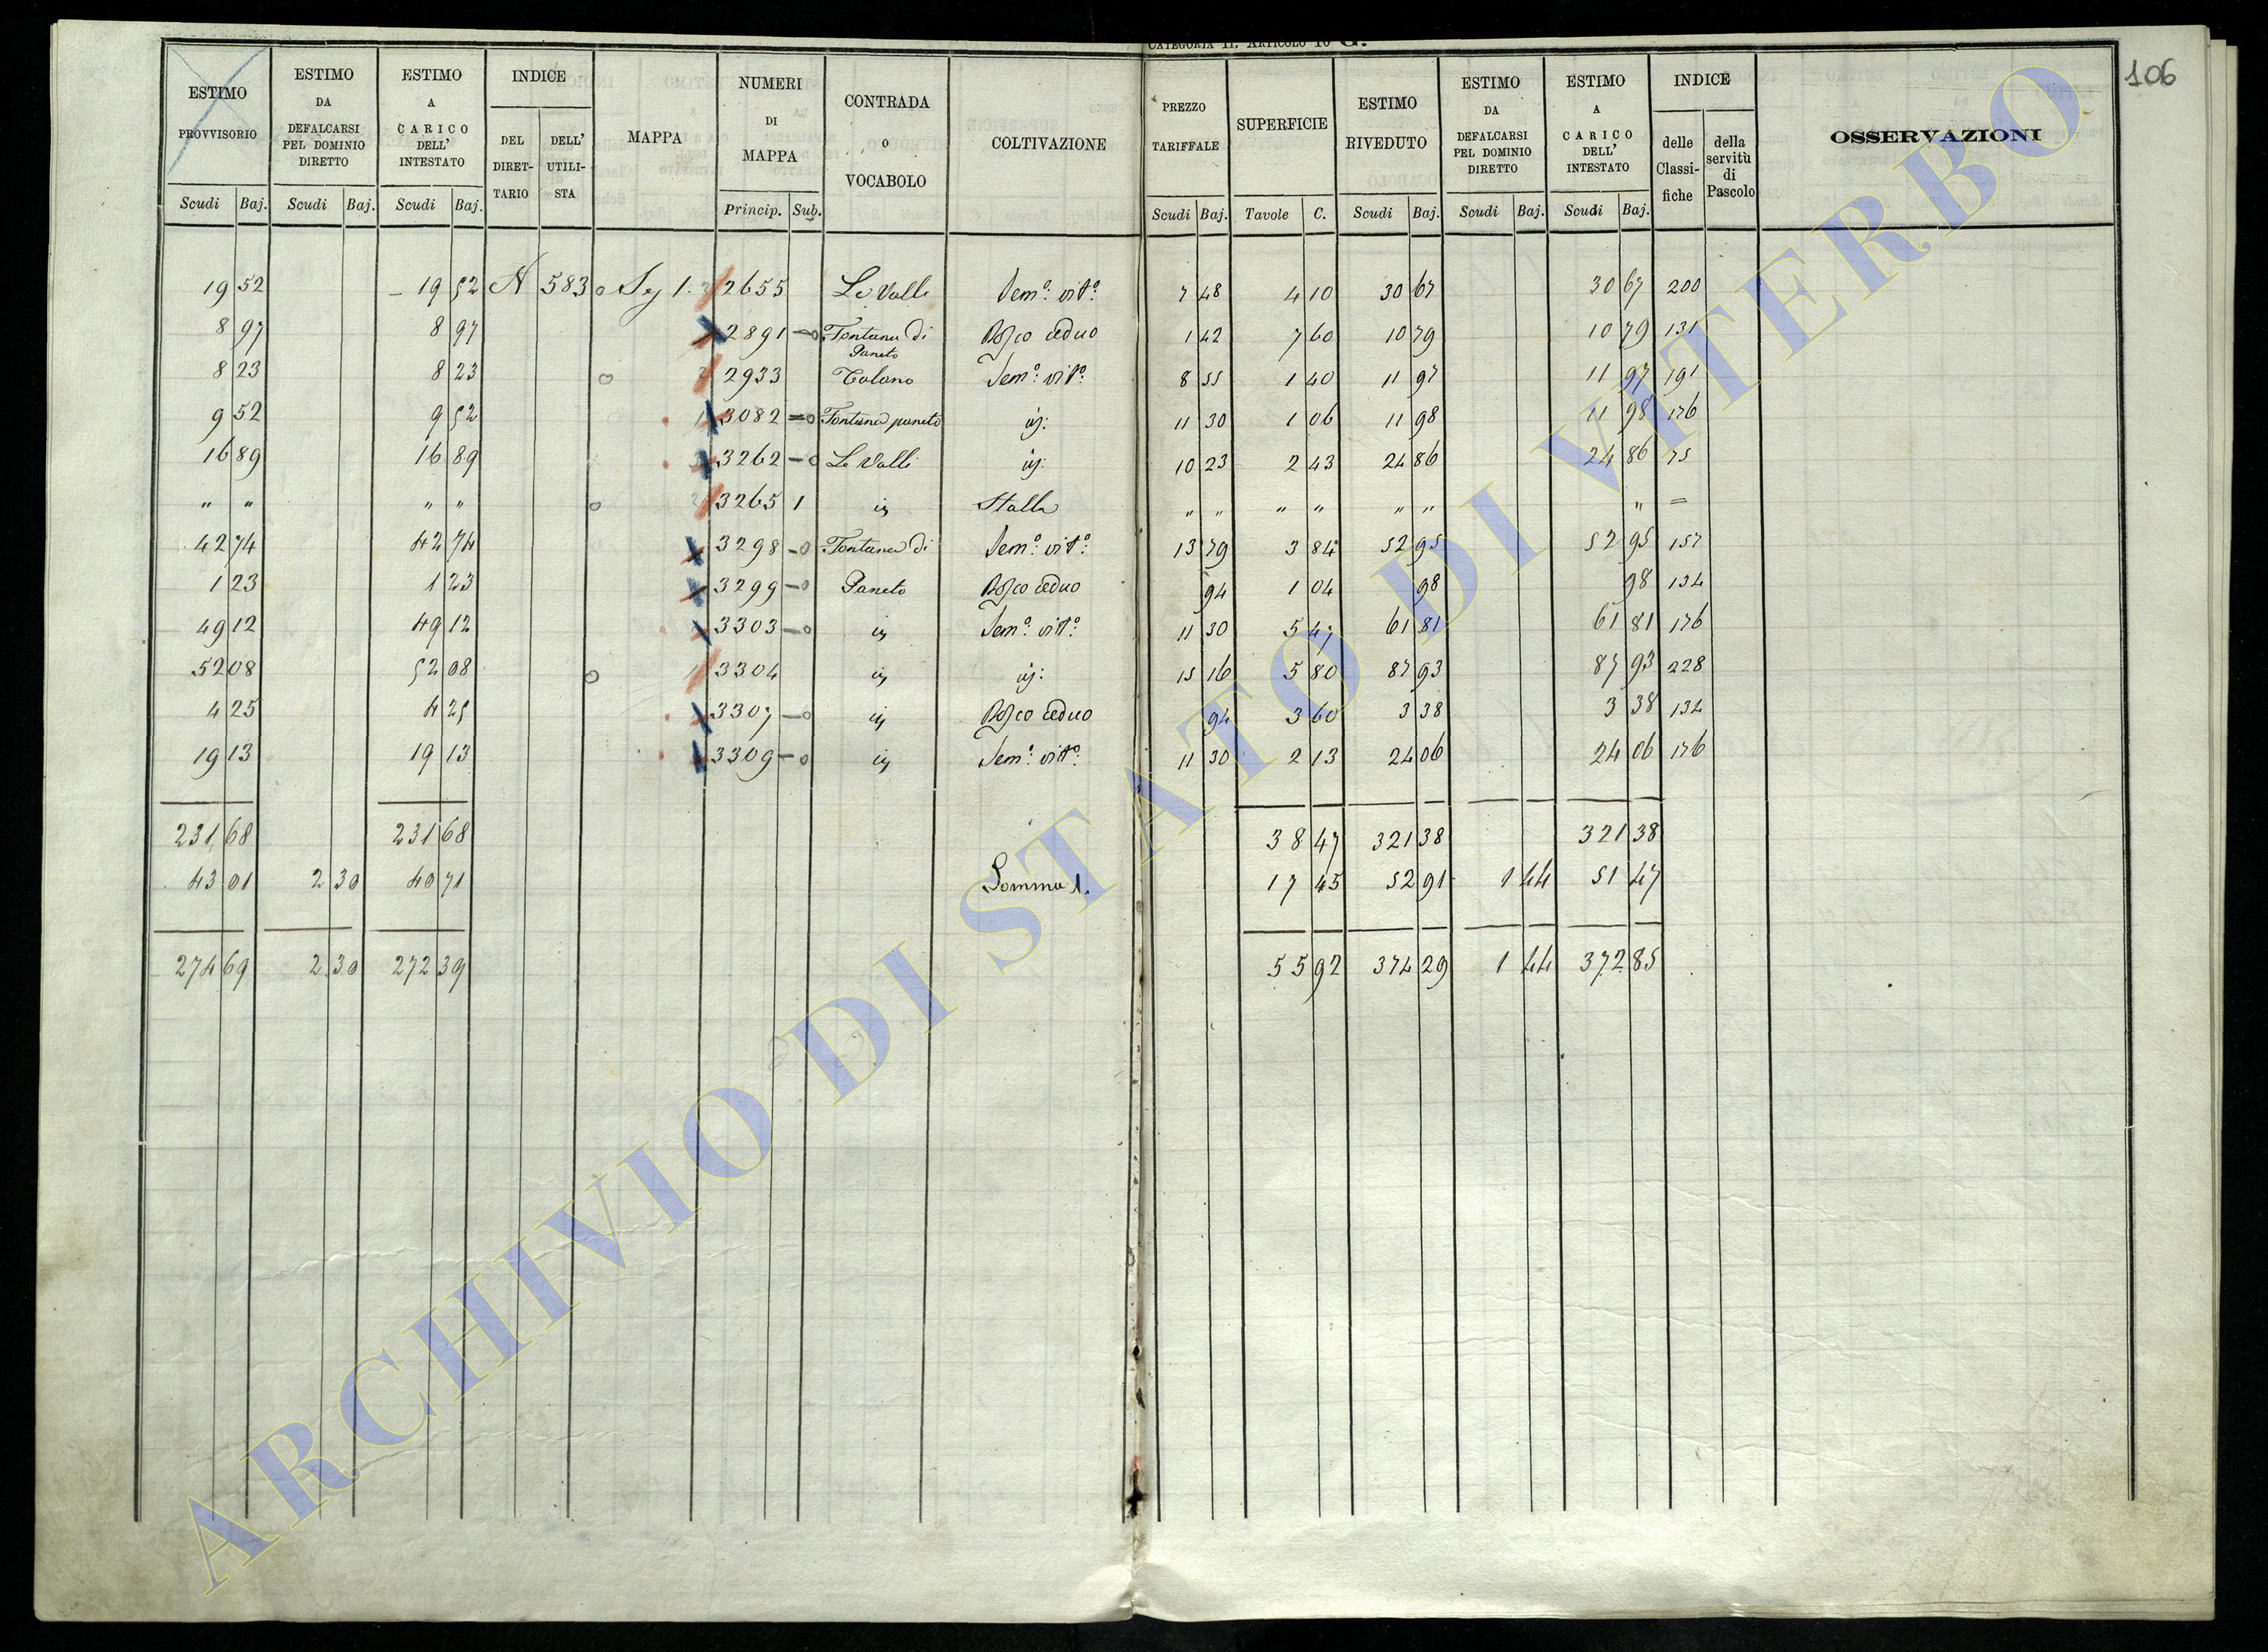 CATEGORIA II. ARTICOLO 10 G.
106
ESTIMO PROVVISORIO
ESTIMO DA DEFALCARSI PEL DOMINIO DIRETTO
ESTIMO A CARICO DELL' INTESTATO
INDICE
DEL DIRET- TARIO
DELL' UTILI- STA
MAPPA
NUMERI DI MAPPA
CONTRADA o VOCABOLO
COLTIVAZIONE
PREZZO TARIFFALE
SUPERFICIE
ESTIMO RIVEDUTO
ESTIMO DA DEFALCARSI PEL DOMINIO DIRETTO
ESTIMO A CARICO DELL' INTESTATO
INDICE
delle Classi- fiche
della servitù di Pascolo
OSSERVAZIONI
Scudi Baj. Scudi Baj. Scudi Baj. Princip. Sub. Scudi Baj. Tavole C. Scudi Baj. Scudi Baj. Scudi Baj.
19 52 19 52 N 583 Sez 1. 2655 Le Valli Sem.o vit.o 7 48 4 10 30 67 30 67 200
8 97 8 97 2891 Fontana di Paneto Bosco ceduo 1 42 7 60 10 79 10 79 131
8 23 8 23 2933 Sem.o vit.o 8 55 1 40 11 97 11 97 191
9 52 9 52 3082 Fontana paneto 11 30 1 06 11 98 11 98 176
16 89 16 89 3262 Le Valli 10 23 2 43 24 86 24 86 75
" " " " 3265 1 Stalla " " " " " " " =
42 74 42 74 3298 Fontana di Sem.o vit.o 13 79 3 84 52 95 52 95 157
1 23 1 23 3299 Paneto Bosco ceduo 94 1 04 98 98 134
49 12 49 12 3303 Sem.o vit.o 11 30 5 47 61 81 61 81 176
52 08 52 08 3304 15 16 5 80 87 93 87 93 228
4 25 4 25 3307 Bosco ceduo 94 3 60 3 38 3 38 134
19 13 19 13 3309 Sem.o vit.o 11 30 2 13 24 06 24 06 176
231 68 231 68 38 47 321 38 321 38
43 01 2 30 40 71 Somma 1. 17 45 52 91 1 44 51 47
274 69 2 30 272 39 55 92 374 29 1 44 372 85
ARCHIVIO DI STATO DI VITERBO